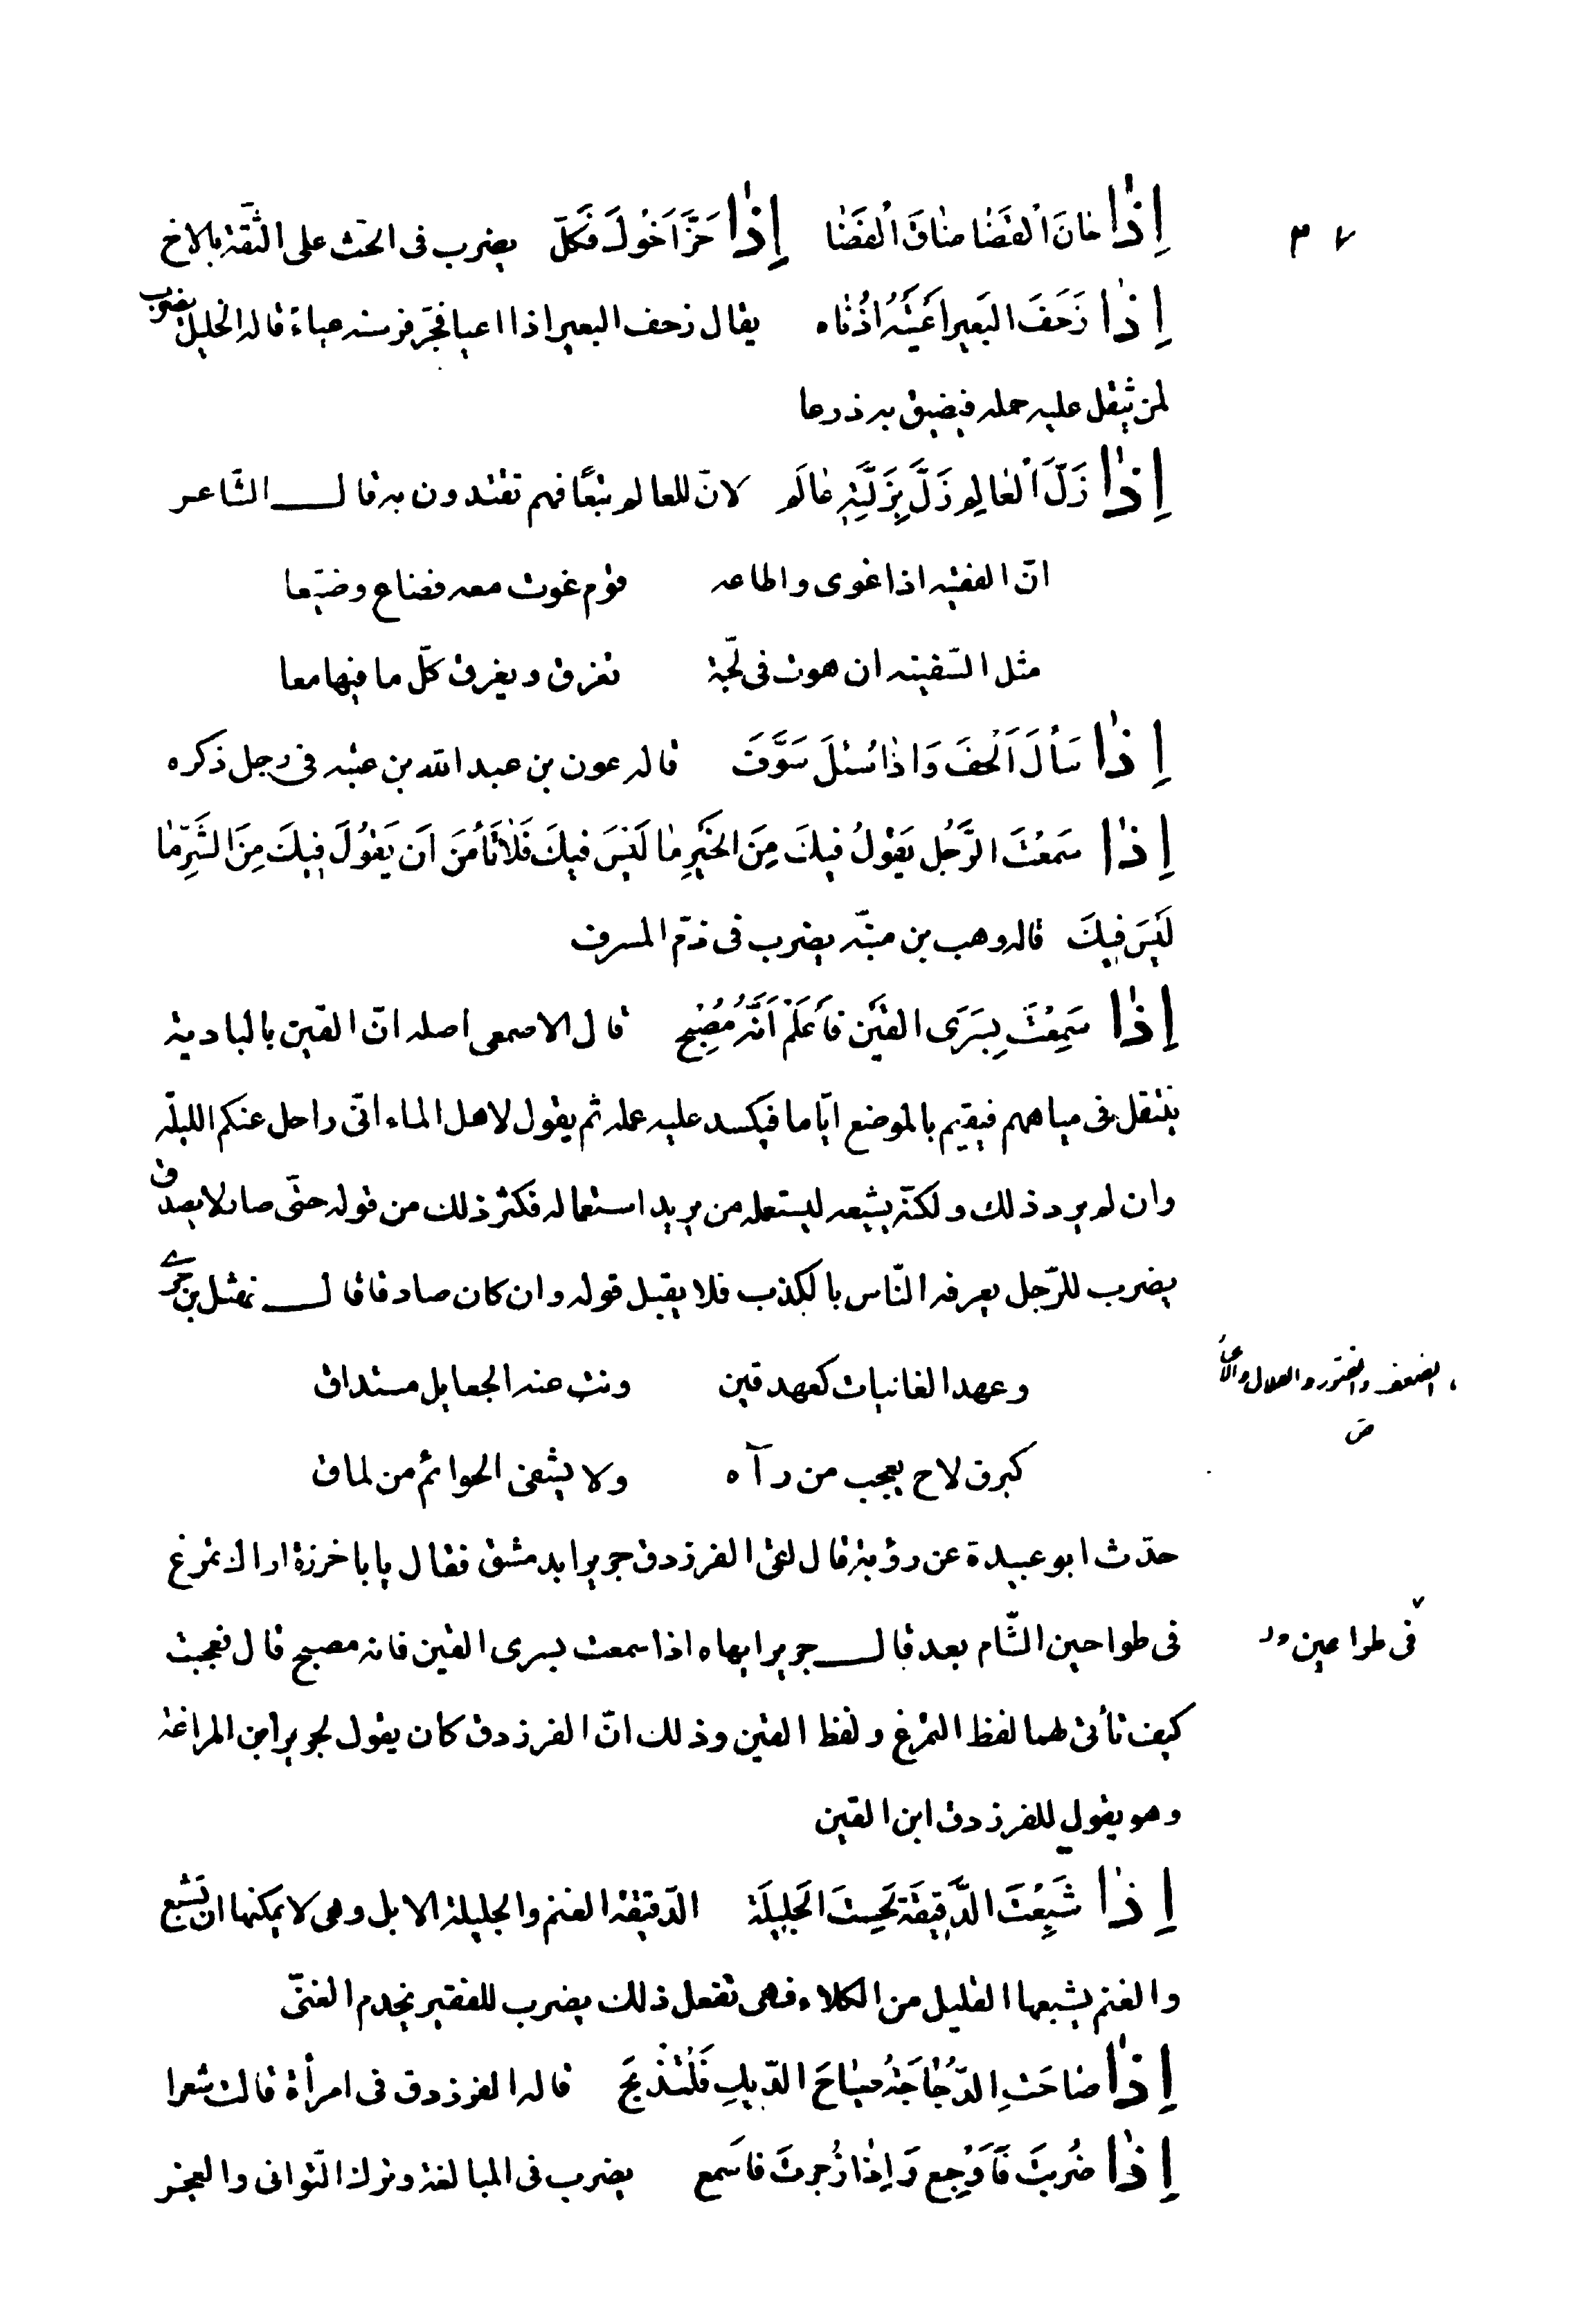 إِذٰا حٰانَ اْلقَضٰا ضٰاقَ اْلفَضٰا إِذٰا حَزَّ اَخُوكَ فَكُلّ يضرب فى الحثّ على الثّقة بالاخ
إِذٰا زَحَفَ البَعيرُ اَعْيَتْهُ اُذُنٰاه يقال زحف البعير اذا اعيا فجرّ فرسنه عياءً قاله الخليل يضرب
لمن يثقل عليه حمله فيضيق به ذرعا
إِذٰا زَلَّ اْلعٰالِمِ زَلَّ بِزَلَّتِهِ عٰالَم لانّ للعالم تبعًا فهم تقتدون به قال الشّاعر
انّ الفقيه اذا غوى واطاعه قوم غووا معه فضاع وضيّعا
مثل السّفينه ان هوت فى لجّة تغرق ويغرق كلّ ما فيها معا
إِذٰا سَأَلَ اَلْحَفَ وَاِذٰا سُئلَ سَوَّفَ قاله عون بن عبد الله بن عتبه فى رجل ذكره
إِذٰا سَمِعْتَ الرَّجُل يَقُولُ فيكَ مِنَ الخَيْرِ مٰا لَيْسَ فيكَ فَلٰا تَأمَنَ اَن يَقُولَ فيكَ مِنَ الشَّرِّ مٰا
لَيْسَ فِيكَ قاله وهب بن منبّه يضرب فى ذمّ المسرف
إِذٰا سَمِعْتَ بِسَرَى القَيْنِ فَاَعْلَمْ اَنَّهُ مُصْبِح قال الاصمعى اصله انّ القين بالبادية
ينتقل فى مياههم فيقيم بالموضع ايّاما فيكسد عليه عمله ثم يقول لاهل الماء انّى راحل عنكم الليلة
وان لم يرد ذلك ولكنّه يشيعه ليستعمله من يريد استعماله فكثر ذلك من قوله حتّى صار لا يصدق
يضرب للرّجل يعرفه النّاس بالكذب فلا يقبل قوله وان كان صادقا قال نهشل بن حرى
وعهد الغانيات كعهد قين ونت عنه الجعايل مستذاق
كبرق لاح يعجب من رآه ولا يشفى الحوائم من لماق
حدّث ابو عبيدة عن رؤبة قال لقى الفرزدق جريرا بدمشق فقال يا باحرزة اراك تمرغ
فى طواحين الشّام بعد قال جرير ايهاه اذا سمعت بسرى القين فانه مصبح قال فعجبت
كيف تأتى لهما لفظ التمرغ ولفظ القين وذلك انّ الفرزدق كان يقول لجرير ابن المراغة
وهو يقول للفرزدق ابن القين
إِذٰا شَبِعَتَ الدَّقِيقَة لَحِسَتَ الجَلِيلَة الدّقيقة الغنم والجليلة الابل وهى لا يمكنها ان تشبع
والغنم يشبعها القليل من الكلاء فهى تفعل ذلك يضرب للفقير يخدم الغنىّ
إِذٰا صٰاحَتِ الدُّجٰاجَةُ صِيٰاحَ الدّيكِ فَلْتُذْبَحَ قاله الفرزدق فى امرأة قالت شعرا
إِذٰا ضُرِبَتَ فَاَوْجِع وَاِذٰا زُجرتَ فاَسمع يضرب فى المبالغة وترك التّوانى والعجز
الضعف والفتور والكلال والاعياء
ص
فى طواعين